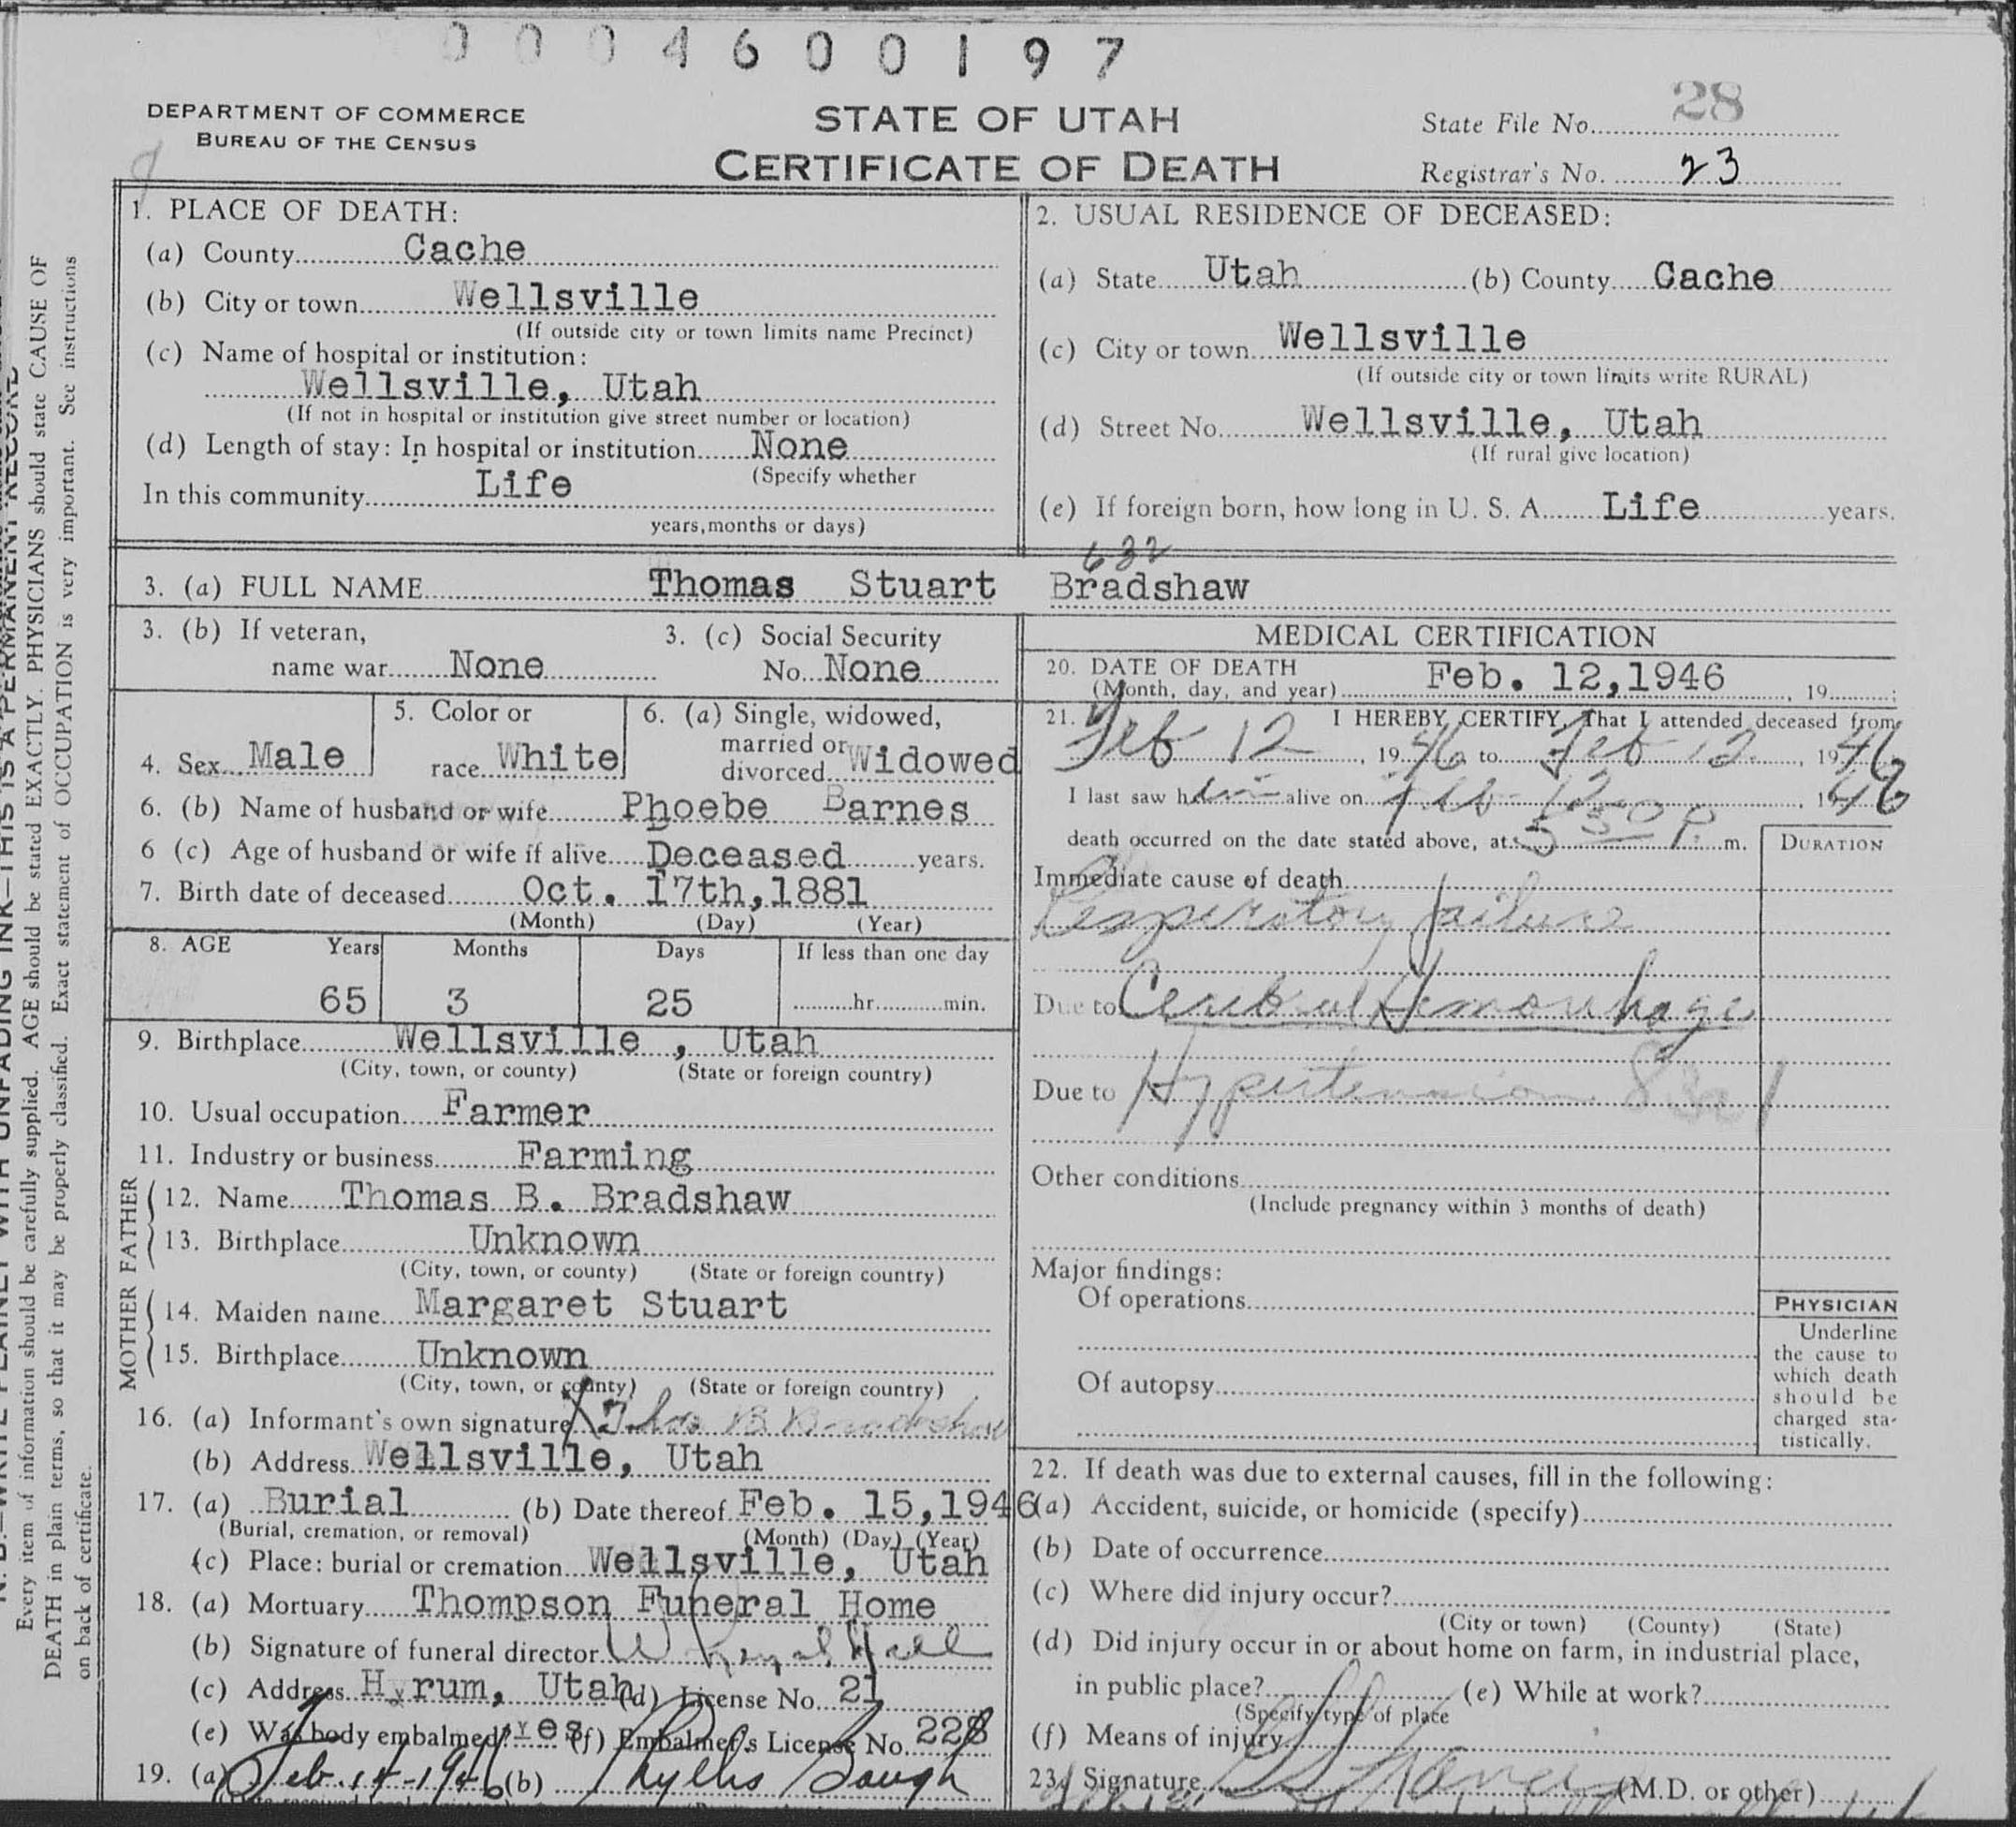 0004600197
DEPARTMENT OF COMMERCE
BUREAU OF THE CENSUS
STATE OF UTAH
CERTIFICATE OF DEATH
State File No. 28
Registrar's No. 23
1. PLACE OF DEATH:
(a) County Cache
(b) City or town Wellsville
(If outside city or town limits name Precinct)
(c) Name of hospital or institution:
Wellsville, Utah
(If not in hospital or institution give street number or location)
(d) Length of stay: In hospital or institution None
(Specify whether
In this community Life
years, months or days)
2. USUAL RESIDENCE OF DECEASED:
(a) State Utah (b) County Cache
(c) City or town Wellsville
(If outside city or town limits write RURAL)
(d) Street No. Wellsville, Utah
(If rural give location)
(e) If foreign born, how long in U. S. A. Life years.
632
3. (a) FULL NAME Thomas Stuart Bradshaw
3. (b) If veteran,
name war None
3. (c) Social Security
No. None
4. Sex Male
5. Color or
race White
6. (a) Single, widowed,
married or
divorced Widowed
6. (b) Name of husband or wife Phoebe Barnes
6 (c) Age of husband or wife if alive Deceased years.
7. Birth date of deceased Oct. 17th, 1881
(Month) (Day) (Year)
8. AGE Years Months Days If less than one day
65 3 25 hr. min.
9. Birthplace Wellsville , Utah
(City, town, or county) (State or foreign country)
10. Usual occupation Farmer
11. Industry or business Farming
FATHER
12. Name Thomas B. Bradshaw
13. Birthplace Unknown
(City, town, or county) (State or foreign country)
MOTHER
14. Maiden name Margaret Stuart
15. Birthplace Unknown
(City, town, or county) (State or foreign country)
16. (a) Informant's own signature X Thos B Bradshaw
(b) Address Wellsville, Utah
17. (a) Burial (b) Date thereof Feb. 15, 1946
(Burial, cremation, or removal) (Month) (Day) (Year)
(c) Place: burial or cremation Wellsville, Utah
18. (a) Mortuary Thompson Funeral Home
(b) Signature of funeral director W Hall
(c) Address Hyrum, Utah (d) License No. 21
(e) Was body embalmed? Yes (f) Embalmer's License No. 228
19. (a) Feb. 14-1946 (b) Phyllis Baugh
MEDICAL CERTIFICATION
20. DATE OF DEATH
(Month, day, and year) Feb. 12, 1946, 19
21. I HEREBY CERTIFY, That I attended deceased from
Feb 12, 1946 to Feb 12, 1946
I last saw him alive on Feb 12, 1946
death occurred on the date stated above, at 5 30 P. m.
DURATION
Immediate cause of death
Respiratory failure
Due to Cerebral Hemorrhage
Due to Hypertension
Other conditions
(Include pregnancy within 3 months of death)
Major findings:
Of operations
Of autopsy
PHYSICIAN
Underline
the cause to
which death
should be
charged sta-
tistically.
22. If death was due to external causes, fill in the following:
(a) Accident, suicide, or homicide (specify)
(b) Date of occurrence
(c) Where did injury occur?
(City or town) (County) (State)
(d) Did injury occur in or about home on farm, in industrial place,
in public place? (e) While at work?
(Specify type of place
(f) Means of injury
23. Signature (M.D. or other)
WRITE PLAINLY WITH UNFADING INK—THIS IS A PERMANENT RECORD
Every item of information should be carefully supplied. AGE should be stated EXACTLY. PHYSICIANS should state CAUSE OF
DEATH in plain terms, so that it may be properly classified. Exact statement of OCCUPATION is very important. See instructions
on back of certificate.